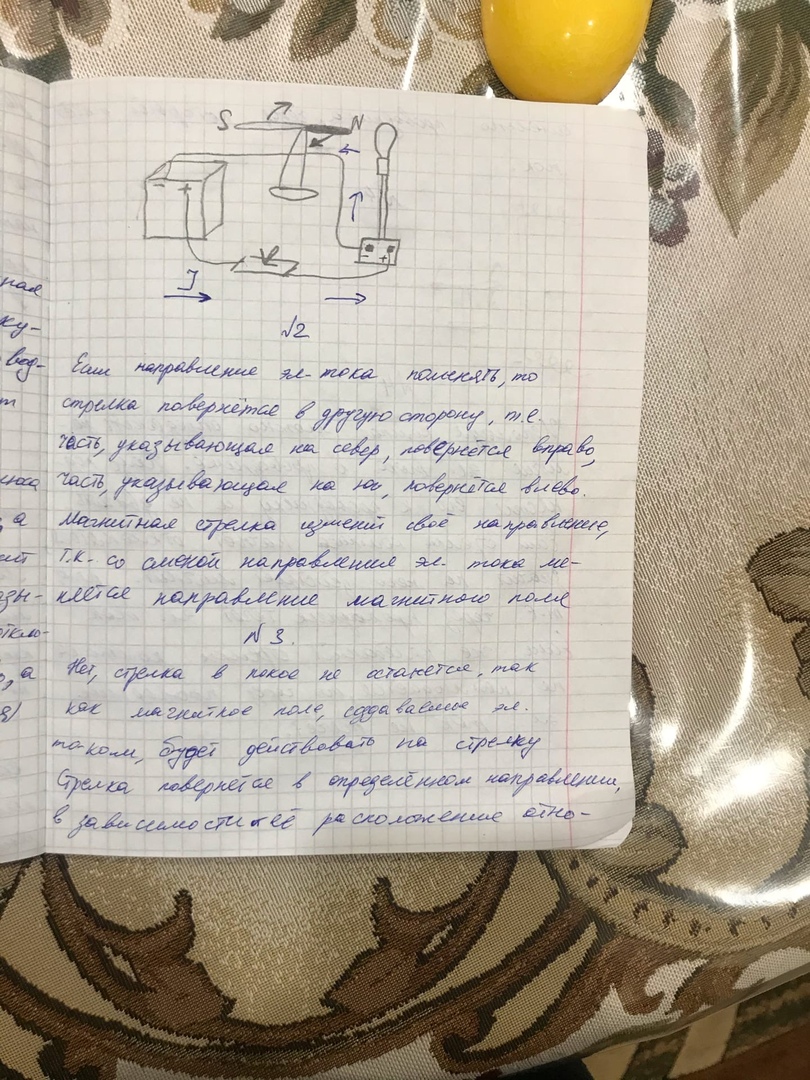 S N
- +
- +
I
№2
Если направление эл-тока поменять, то
стрелка повернётся в другую сторону, т.е.
часть, указывающая на север, повернётся вправо,
часть, указывающая на юг, повернётся влево.
Магнитная стрелка изменит своё направление,
т.к. со сменой направления эл. тока ме-
няется направление магнитного поля
№3.
Нет, стрелка в покое не останется, так
как магнитное поле, создаваемое эл.
током, будет действовать на стрелку
Стрелка повернётся в определённом направлении,
в зависимости её расположения отно-
ная
ку-
вод-
т
люса
, а
ит
азы-
откло-
о, а
я)